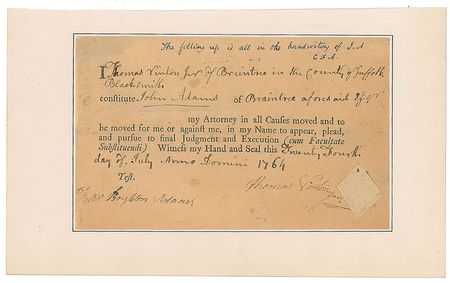 The filling up is all in the handwriting of J. A
C F A.
I Thomas Vinton Junr of Braintree in the County of Suffolk
Blacksmith
constitute John Adams of Braintree aforesaid Esqr
my Attorney in all Causes moved and to
be moved for me or against me, in my Name to appear, plead,
and pursue to final Judgment and Execution (cum Facultate
Substituendi) Witness my Hand and Seal this Twenty Fourth
day of July Anno Domini 1764
Test.
Boylston Adams
Thomas Vinton